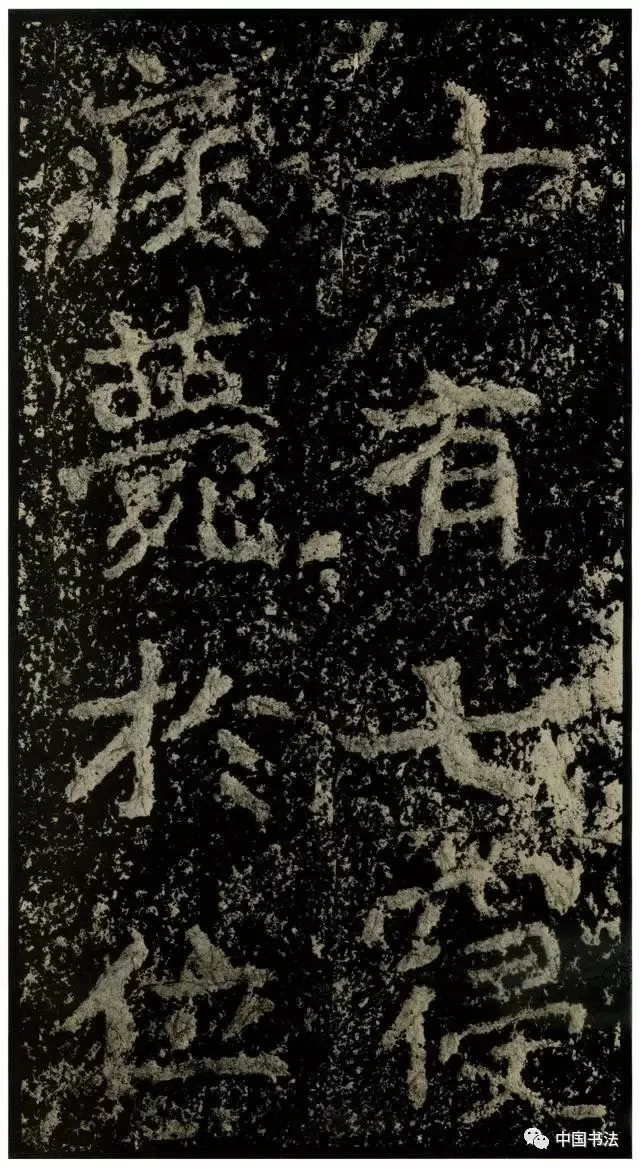 十有七寑
疾薨於位
中国书法